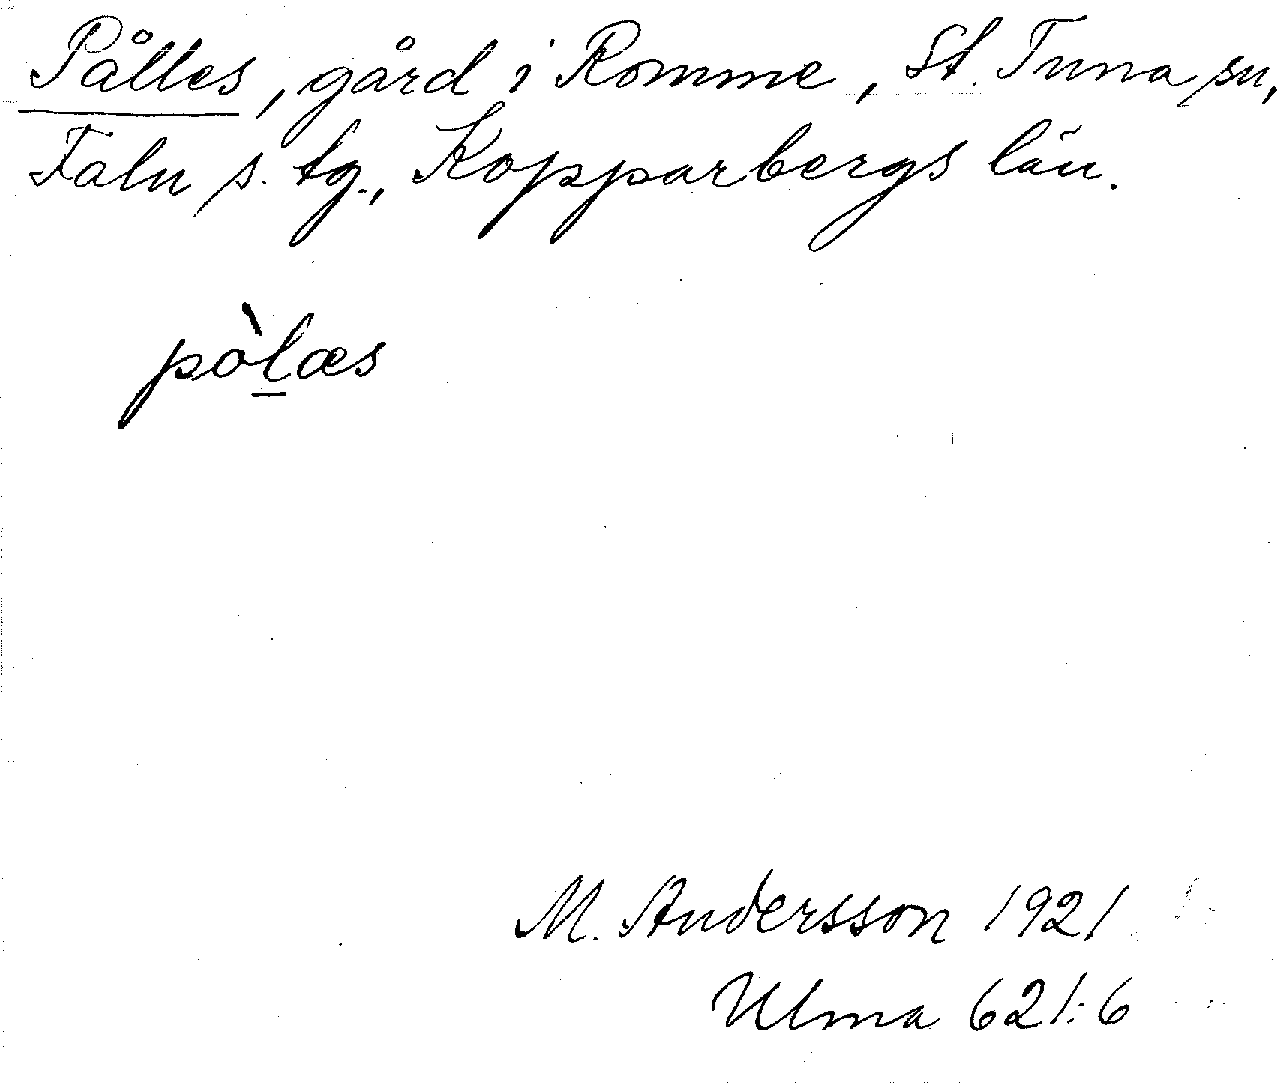 Pålles, gård i Romme, St. Tuna sn,
Falu s. tg., Kopparbergs län.
pòlæs
M. Andersson 1921
Ulma 621:6